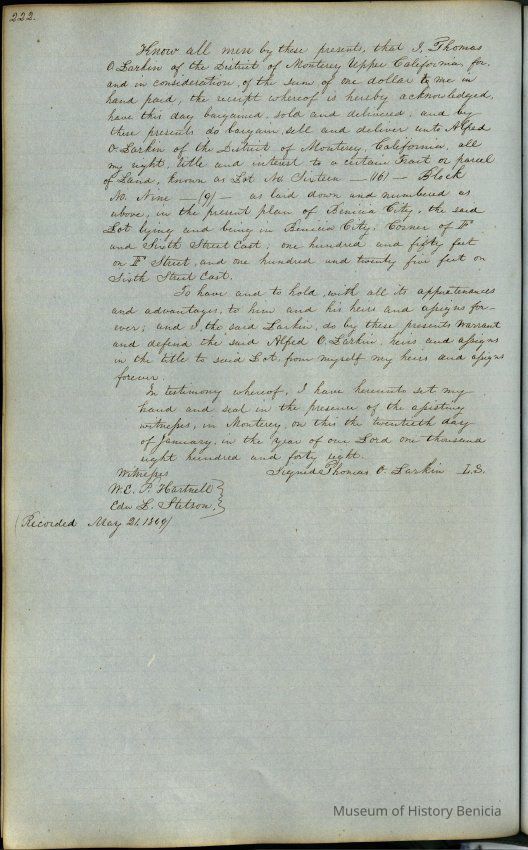 222.
Know all men by these presents, that I, Thomas
O Larkin of the District of Monterey Upper California, for
and in consideration, of the sum of one dollar to me in
hand paid, the receipt whereof is hereby acknowledged,
have this day bargained, sold and delivered; and by
these presents do bargain, sell and deliver unto Alfred
O. Larkin of the District of Monterey, California, all
my right, title and interest to a certain Tract or parcel
of Land, known as Lot No. Sixteen — (16) — Block
No. Nine — (9) — as laid down and numbered as
above, in the present plan of Benicia City, the said
Lot lying and being in Benicia City; Corner of F
and Sixth Street East; one hundred and fifty feet
on F Street, and one hundred and twenty five feet on
Sixth Street East.
To have and to hold, with all its appurtenances
and advantages, to him and his heirs and assigns for-
ever; and I, the said Larkin, do by these presents Warrant
and defend the said Alfred O. Larkin, heirs and assigns
in the title to said Lot, from myself my heirs and assigns
forever.
In testimony whereof, I have hereunto set my
hand and seal in the presence of the assisting
witnesses, in Monterey, on this the twentieth day
of January, in the Year of our Lord one thousand
eight hundred and forty eight.
Witnesses Signed Thomas O. Larkin L.S.
W. E. P. Hartnell
Edw L. Stetson.
(Recorded May 21, 1849)
Museum of History Benicia